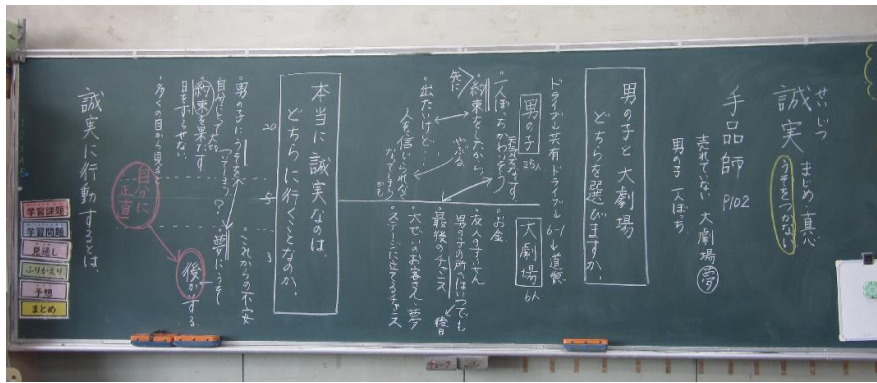 せいじつ
誠実
まじめ・真心
うそをつかない
手品師 P102
売れていない 大劇場 夢
男の子 一人ぼっち
男の子と大劇場
どちらを選びますか。
ドライブ 共有ドライブ 6-1 道徳
男の子
25人
一人ぼっちかわいそう
約束をしたから
先に
やぶる
出たいけど…
人に信じられなくなってしまうかも
大劇場
6人
お金
友人のすいせん
男の子の所へはいつでも
最後のチャンス
後日
大ぜいのお客さん・夢
ステージに立てるチャンス
本当に誠実なのは、
どちらに行くことなのか。
20
5
3
男の子にうそをついてしまう?
約束を果たす
目をそらせない
多くの目から見ると
これからの不安
夢にうそ
後かいする
自分に正直
誠実に行動するとは、
学習課題
学習問題
見通し
ふりかえり
予想
まとめ